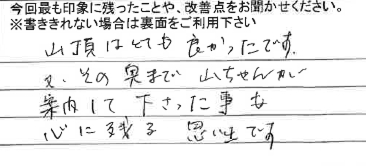 今回最も印象に残ったことや、改善点をお聞かせください。
※書ききれない場合は裏面をご利用下さい
山頂はとても良かったです。
又、その奥まで山ちゃんが
案内して下さった事も
心に残る思い出です